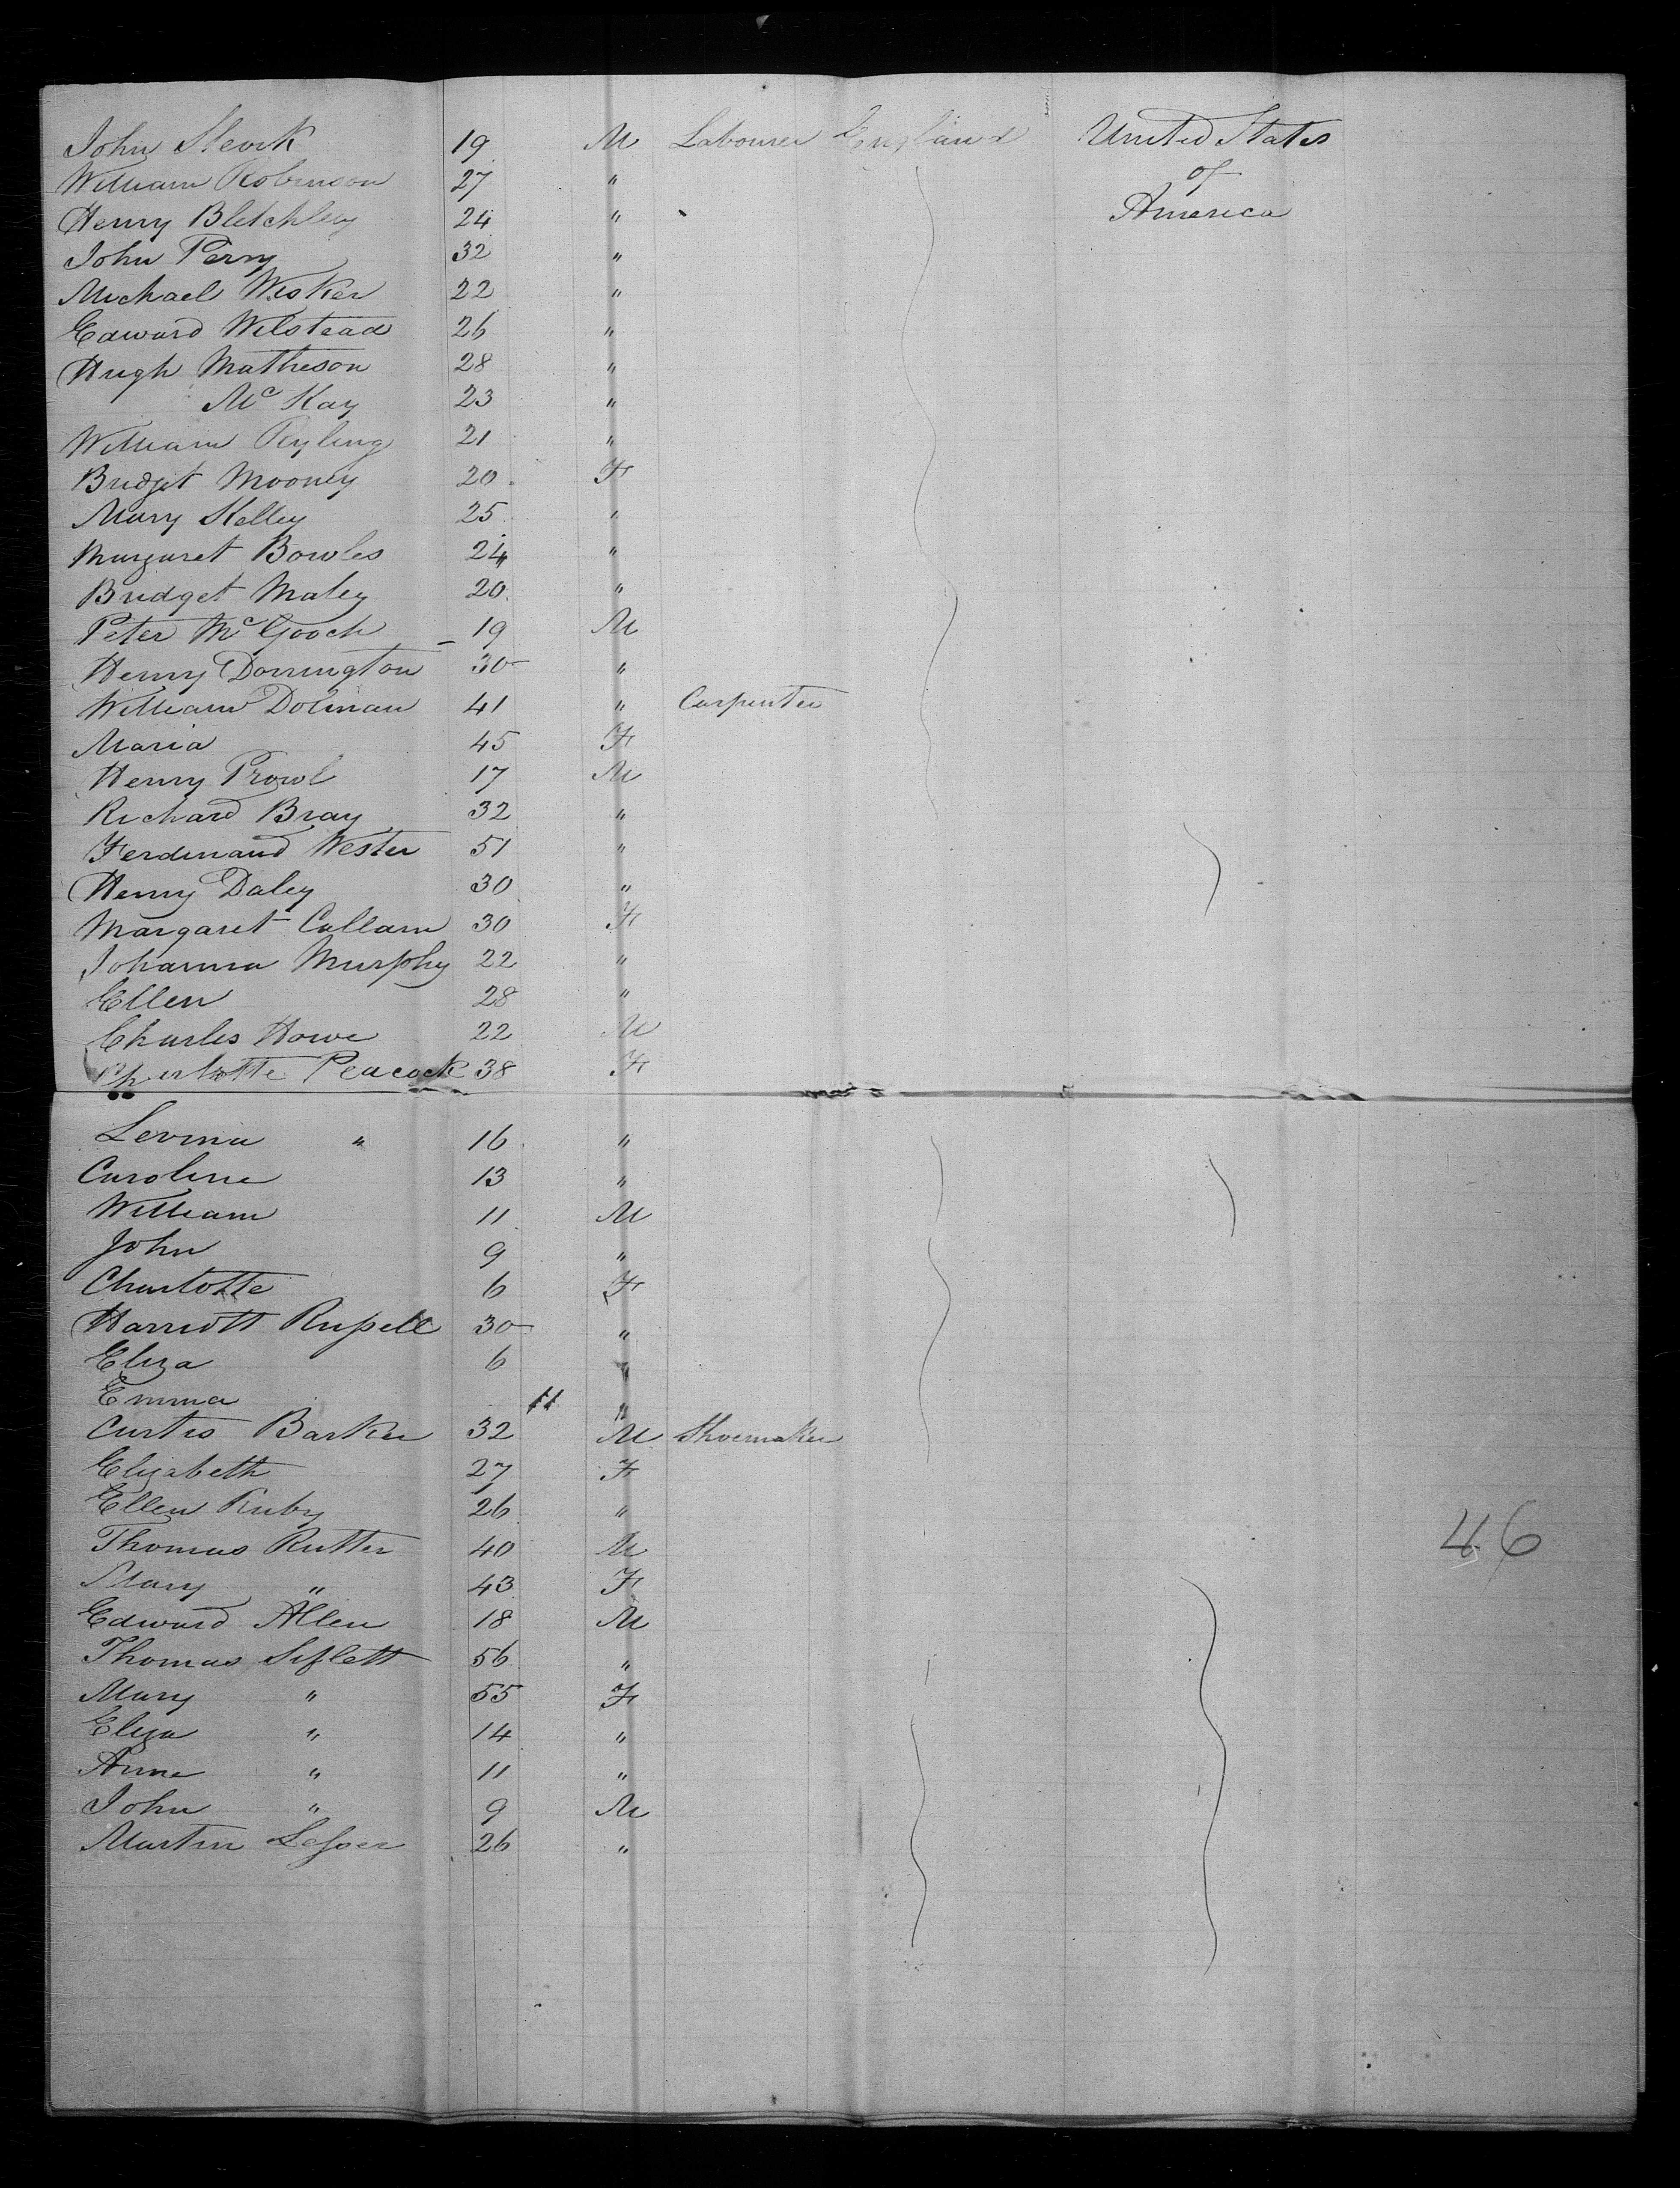 John Slevik 19 M Labourer England United States
William Robinson 27 " of
Henry Bletchley 24 " America
John Perry 32 "
Michael Wisker 22 "
Edward Wilstead 26 "
Hugh Matheson 28 "
Mc Kay 23 "
William Ryling 21 "
Bridget Mooney 20 F
Mary Kelley 25 "
Margaret Bowles 24 "
Bridget Maley 20 "
Peter McGooch 19 M
Henry Dorrington 30 "
William Dolman 41 " Carpenter
Maria 45 F
Henry Prowl 17 M
Richard Bray 32 "
Ferdinand Wester 51 "
Henry Daley 30 "
Margaret Callam 30 F
Johanna Murphy 22 "
Ellen 28 "
Charles Howe 22 M
Charlotte Peacock 38 F
Levina " 16 "
Caroline 13 "
William 11 M
John 9 "
Charlotte 6 F
Harriott Russell 30 "
Eliza 6 "
Emma 11 "
Curtis Barker 32 M Shoemaker
Elizabeth 27 F
Ellen Ruby 26 "
Thomas Rutter 40 M 46
Mary " 43 F
Edward Allen 18 M
Thomas Siflett 56 "
Mary " 55 F
Eliza " 14 "
Anne " 11 "
John " 9 M
Martin 26 "